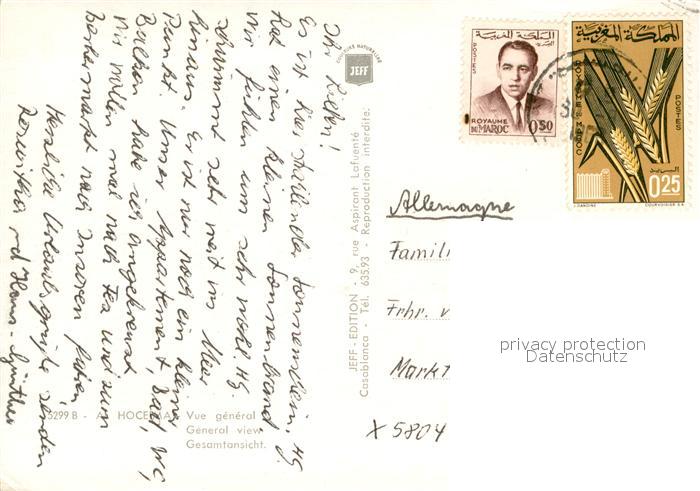 Ihr Lieben!
Es ist hier strahlender Sonnenschein. HG.
hat einen kleinen Sonnenbrand.
Wir fühlen uns sehr wohl. HG.
schwimmt sehr weit ins Meer
hinaus. Er ist nur noch ein kleiner
Punkt. Unser Appartement, Bad, WC,
Balkon habe ich angekreuzt
Wir wollen mal nach Fes und zum
Berbermarkt nach fahren
Herzliche Urlaubsgrüße senden
Roswitha und Hans-Günther
COULEURS NATURELLES
JEFF
JEFF-EDITION - 9, rue Aspirant Lafuenté
Casablanca - Tél. 635.93 - Reproduction interdite.
5299 B - AL HOCEIMA Vue général
Général view
Gesamtansicht.
المملكة المغربية
البريد
POSTES
ROYAUME
DU MAROC
0.50
المملكة المغربية
ROYAUME DU MAROC
POSTES
البريد
0.25
J. GANDINE
COURVOISIER S.A.
Allemagne
Famili
Frhr. v
Markt
X 5804
privacy protection
Datenschutz